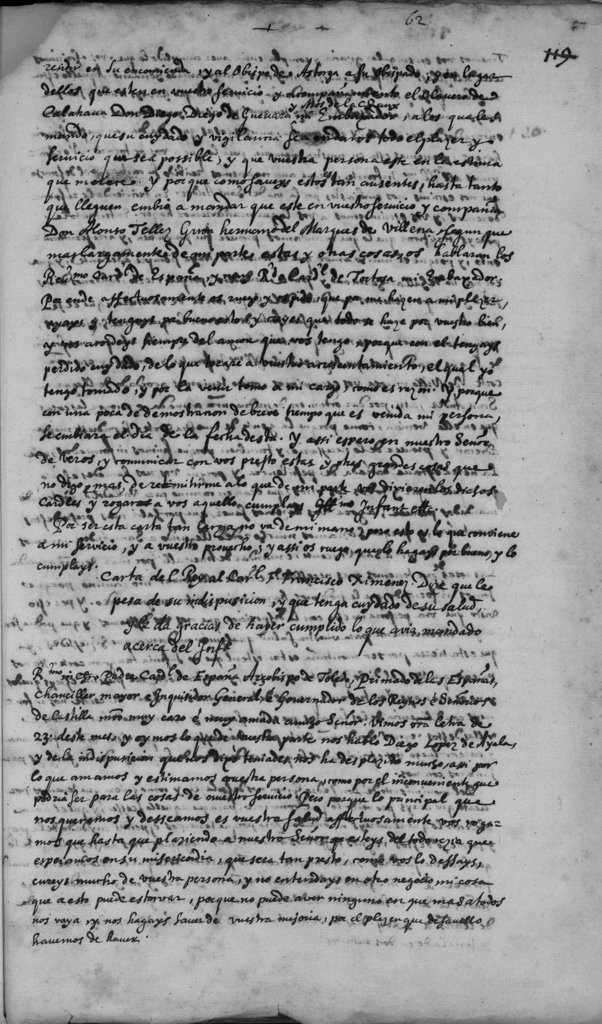 62
119
residir en su encomienda, y al Obispo de Astorga a su obispado, y en lugar
dellos que esten en vuestro servicio y acompañamiento el Clavero de
Calatrava Don Diego de Guevara y Mos de la Chaux
mi Embaxador, a los quales
mando, que su cuydado y vigilancia sea en daros todo el plazer y
servicio que sea possible, y que vuestra persona este en la estima
que merece. y porque como saveys estos tan ausentes, hasta tanto
que lleguen embio a mandar que este en vuestro servicio y compañia
Don Alonso Tellez Giron hermano del Marques de Villena, segun que
mas largamente de mi parte estas y otras cosas os hablaran los
R.mo Card.l de España, y muy R.do Card.l de Tortosa mi Embaxador.
Por ende affectuosamente os ruego y os pido, que
y tengays por bueno esto, y creyes que todo se haze por vuestro bien,
y vos acordeys siempre del amor que vos tengo, y porque con el tengays
perdido cuydado, de lo que vuestro acrecentamiento, el qual yo
tengo tomado, y por la venir tomo a mi cargo como es razon. Y porque
con una poca de demostracion de breve tiempo que es venida mi persona
se embiara el dia de la fecha desta. Y assi espero en nuestro Señor
de veros, y comunicar con vos presto estas y otras grandes cosas que
no digo mas, de remitirme a lo que de mi parte vos dixieren los dichos
Car.les y rogaros a vos aquello cumplays Ill.mo Infant etc.
Por ser esta carta tan larga no va de mi mano, pero esto es lo que conviene
a mi servicio, y a vuestro provecho, y assi os ruego, que lo hagays por bueno, y lo
cumplays.
Carta del Rey al Car.l F. Francisco Ximenez. Dize que le
pesa de su indispusicion, y que tenga cuydado de su salud,
y le da gracias de hazer cumplido lo que avia mandado
acerca del Inf.te
R.mo in Christo Padre Card.l de España Arzobispo de Toledo, Primado de las Españas,
Chanciller mayor e Inquisidor General, e Governador de los Reynos e Señorios
de Castilla nuestro muy caro e muy amado amigo Señor. Vimos vuestra letra de
23. deste mes, y oymos lo que de vuestra parte nos hablo Diego Lopez de Ayala,
y de la indispusicion que nos dixo teniades nos ha desplazido mucho, asi por
lo que amamos y estimamos vuestra persona, como por el inconveniente que
podria ser para las cosas de nuestro servicio. Pero porque lo principal que
nos queremos y desseamos es vuestra salud affectuosamente vos roga-
mos que hasta que plaziendo a nuestro Señor esteys del todo que
esperamos en su misericordia, que sera tan presto, como vos lo dessays,
cureys mucho de vuestra persona, y no entendays en otro negocio, ni cosa
que a esto puede estorvar, porque no puede aver ninguno en que mas a todos
nos vaya, y nos hagays saver de vuestra mejoria, por el plazer que de savello
havemos de haver.